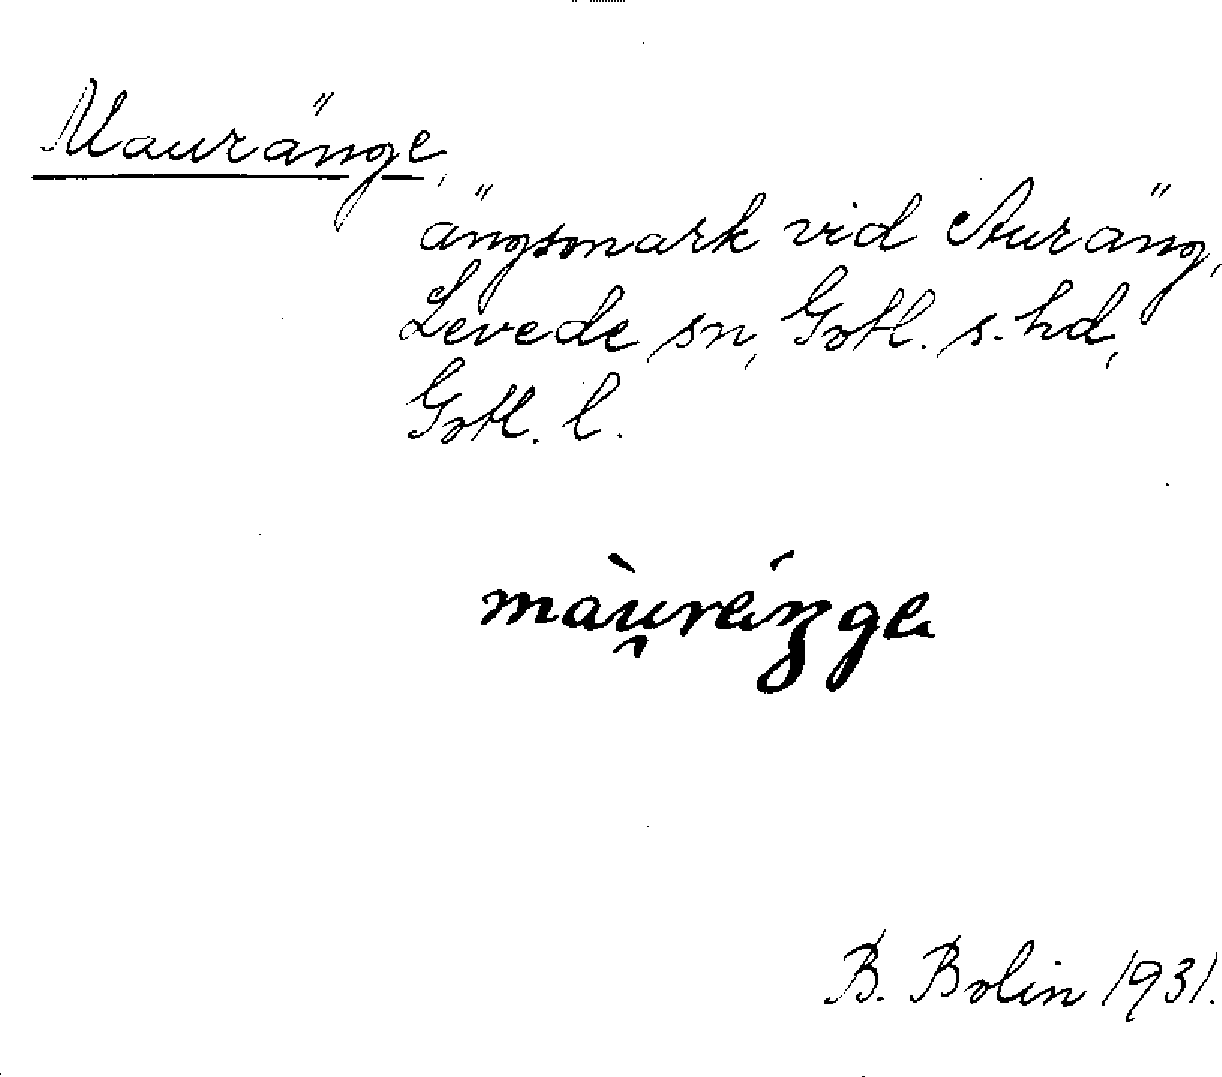 Mauränge,
ängsmark vid Auräng,
Levede sn, Gotl. s. hd,
Gotl. l.
B. Bolin 1931.